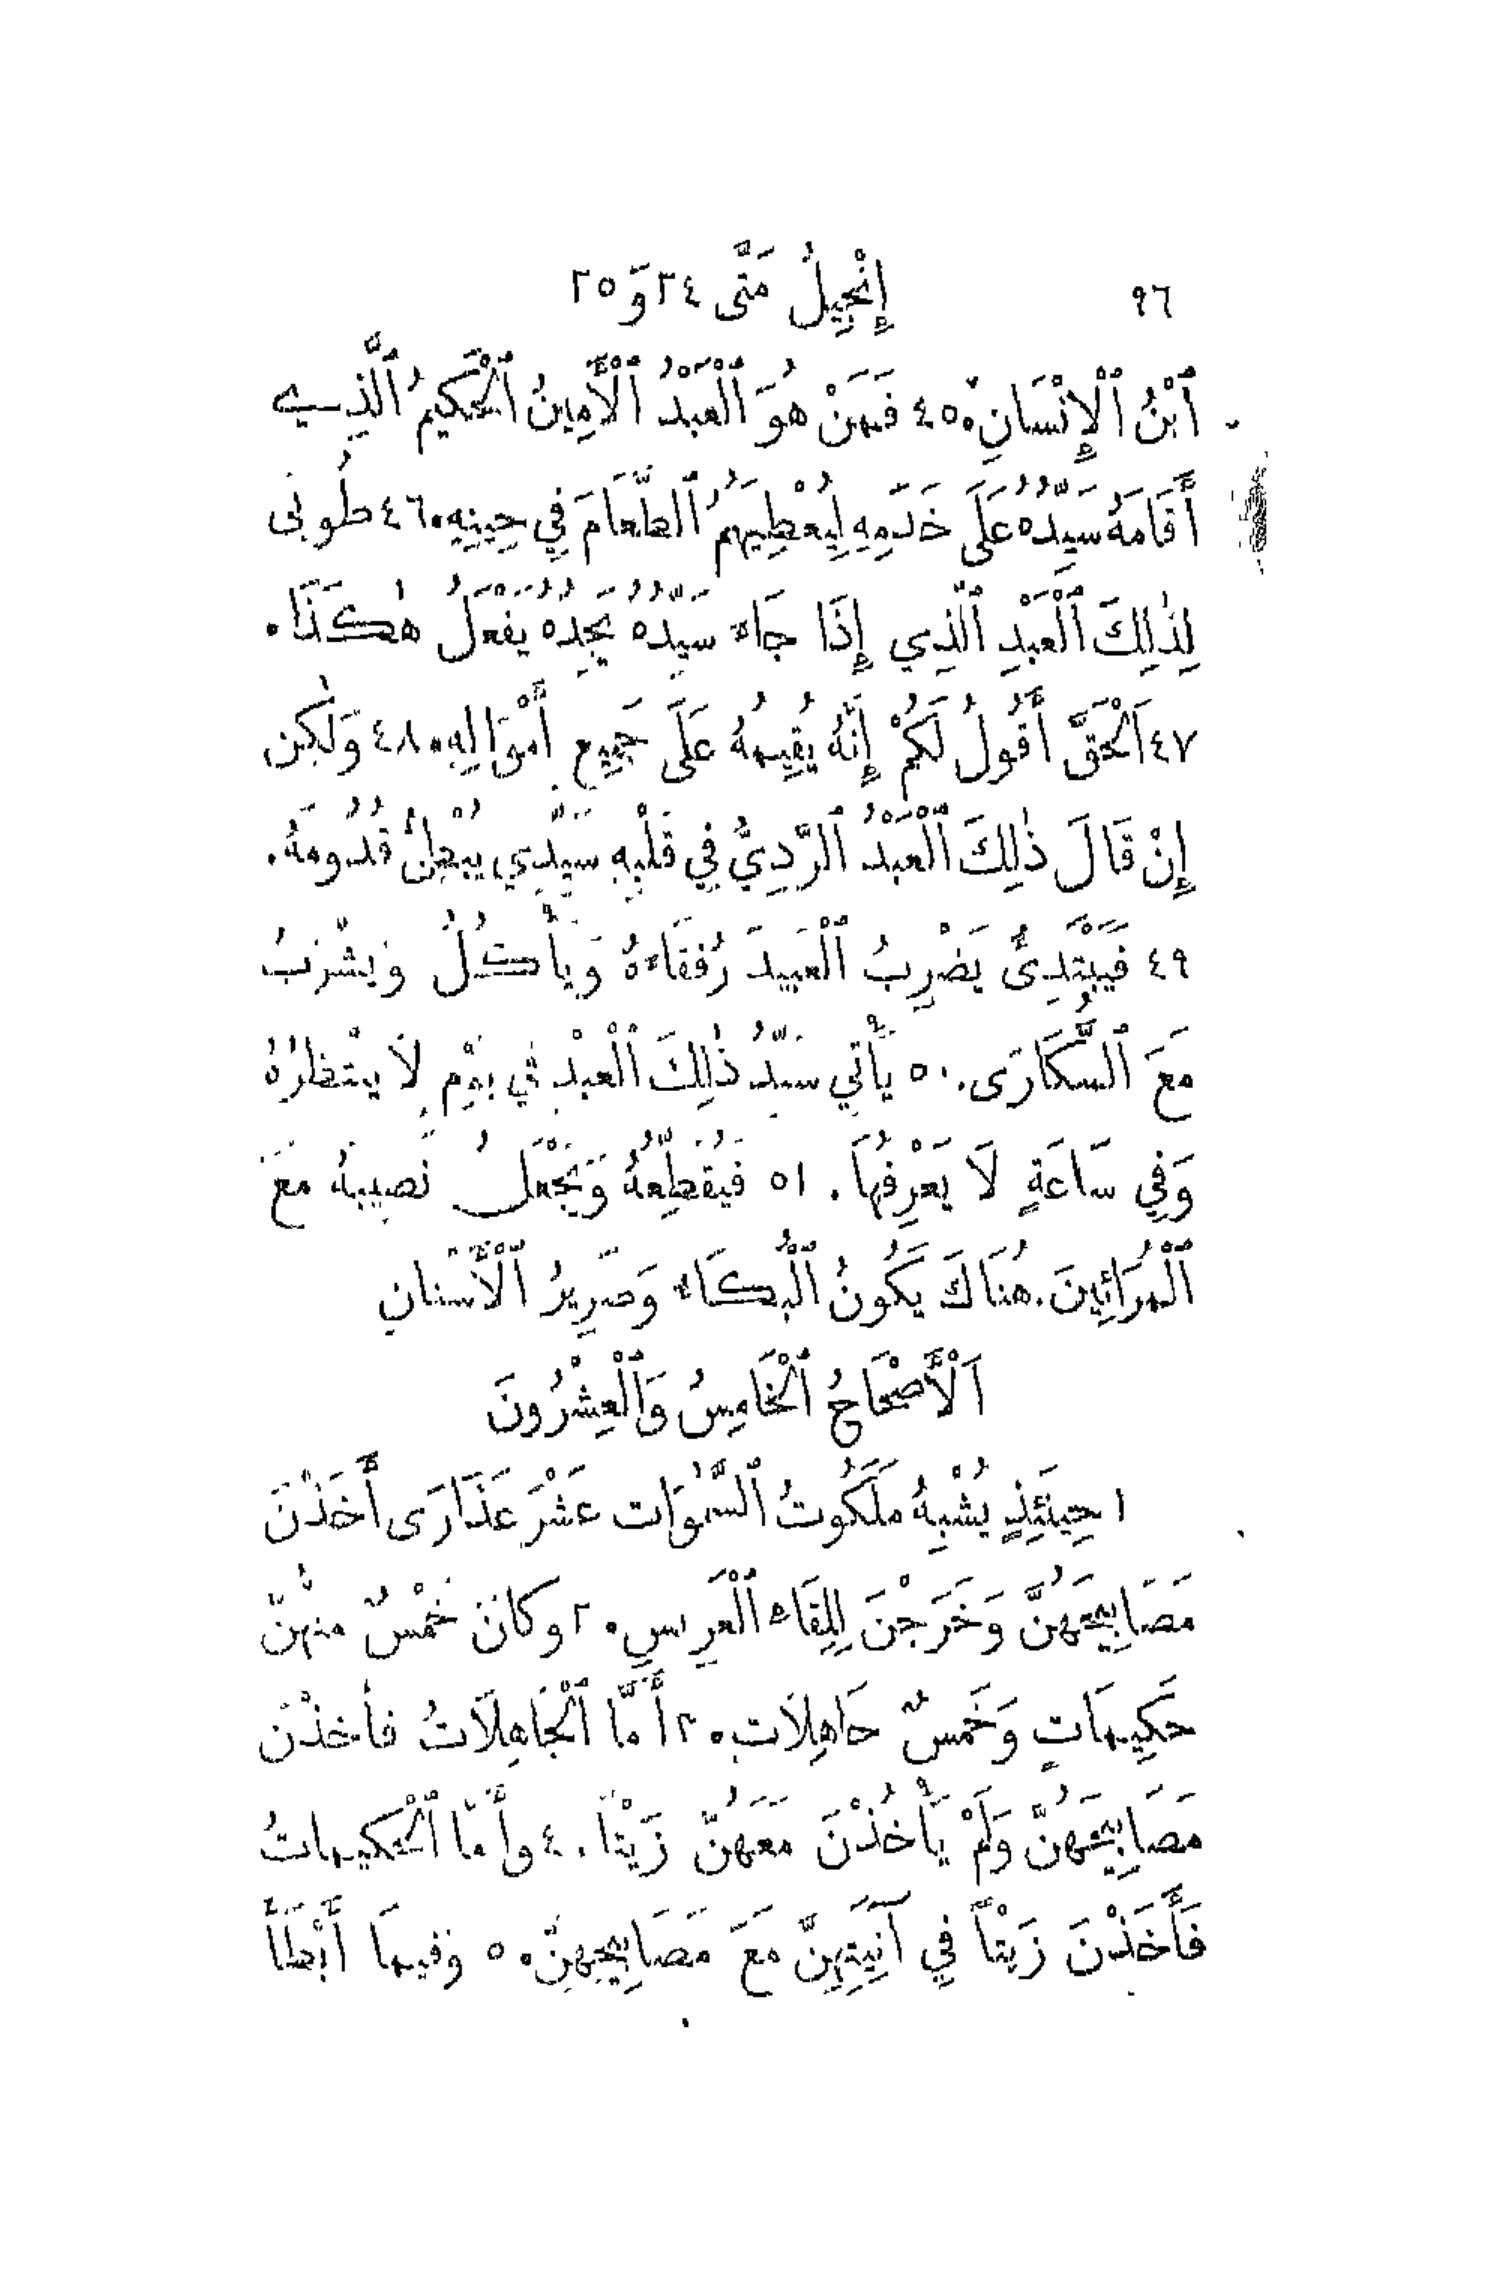 ٩٦ إِنْجِيلُ مَتَّى ٢٤ وَ ٢٥
ٱبْنُ ٱلْإِنْسَانِ. ٤٥ فَمَنْ هُوَ ٱلْعَبْدُ ٱلْأَمِينُ ٱلْحَكِيمُ ٱلَّذِي
أَقَامَهُ سَيِّدُهُ عَلَى خَدَمِهِ لِيُعْطِيَهُمُ ٱلطَّعَامَ فِي حِينِهِ. ٤٦ طُوبَى
لِذٰلِكَ ٱلْعَبْدِ ٱلَّذِي إِذَا جَاءَ سَيِّدُهُ يَجِدُهُ يَفْعَلُ هٰكَذَا.
٤٧ اَلْحَقَّ أَقُولُ لَكُمْ إِنَّهُ يُقِيمُهُ عَلَى جَمِيعِ أَمْوَالِهِ. ٤٨ وَلٰكِنْ
إِنْ قَالَ ذٰلِكَ ٱلْعَبْدُ ٱلرَّدِيُّ فِي قَلْبِهِ سَيِّدِي يُبْطِئُ قُدُومَهُ.
٤٩ فَيَبْتَدِئُ يَضْرِبُ ٱلْعَبِيدَ رُفَقَاءَهُ وَيَأْكُلُ وَيَشْرَبُ
مَعَ ٱلسُّكَارَى. ٥٠ يَأْتِي سَيِّدُ ذٰلِكَ ٱلْعَبْدِ فِي يَوْمٍ لَا يَنْتَظِرُهُ
وَفِي سَاعَةٍ لَا يَعْرِفُهَا. ٥١ فَيُقَطِّعُهُ وَيَجْعَلُ نَصِيبَهُ مَعَ
ٱلْمُرَائِينَ. هُنَاكَ يَكُونُ ٱلْبُكَاءُ وَصَرِيرُ ٱلْأَسْنَانِ
اَلْأَصْحَاحُ ٱلْخَامِسُ وَٱلْعِشْرُونَ
١ حِينَئِذٍ يُشْبِهُ مَلَكُوتُ ٱلسَّمٰوَاتِ عَشْرَ عَذَارَى أَخَذْنَ
مَصَابِيحَهُنَّ وَخَرَجْنَ لِلِقَاءِ ٱلْعَرِيسِ. ٢ وَكَانَ خَمْسٌ مِنْهُنَّ
حَكِيمَاتٍ وَخَمْسٌ جَاهِلَاتٍ. ٣ أَمَّا ٱلْجَاهِلَاتُ فَأَخَذْنَ
مَصَابِيحَهُنَّ وَلَمْ يَأْخُذْنَ مَعَهُنَّ زَيْتًا. ٤ وَأَمَّا ٱلْحَكِيمَاتُ
فَأَخَذْنَ زَيْتًا فِي آنِيَتِهِنَّ مَعَ مَصَابِيحِهِنَّ. ٥ وَفِيمَا أَبْطَأَ